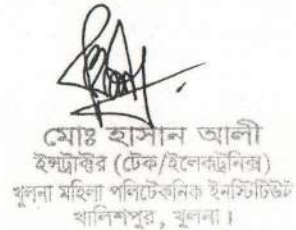 মোঃ হাসান আলী
ইন্সট্রাক্টর (টেক/ইলেকট্রনিক্স)
খুলনা মহিলা পলিটেকনিক ইনস্টিটিউট
খালিশপুর, খুলনা।